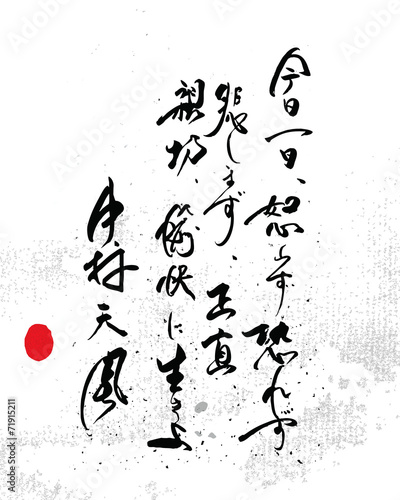 今日一日、怒らず恐れず
悲しまず、正直
親切、愉快に生きよ
中村天風
Adobe Stock | 71915211